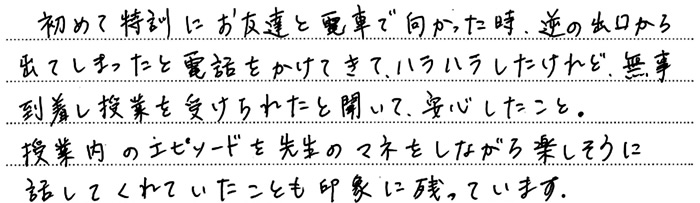 初めて特訓にお友達と電車で向かった時、逆の出口から
出てしまったと電話をかけてきて、ハラハラしたけれど、無事
到着し授業を受けられたと聞いて、安心したこと。
授業内のエピソードを先生のマネをしながら楽しそうに
話してくれていたことも印象に残っています。